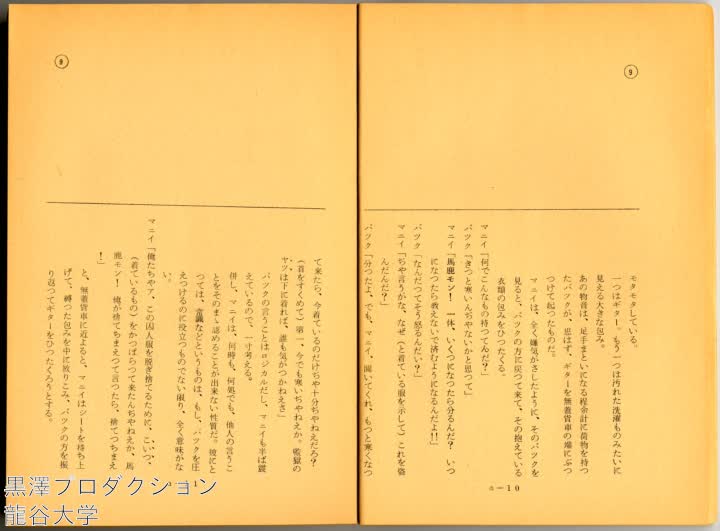 ⑨
モタモタしている。
一つはギター。もう一つは汚れた洗濯ものみたいに
見える大きな包み。
あの物音は、足手まといになる程余計に荷物を持つ
たバツクが、思はず、ギターを無蓋貨車の端にぶつ
つけて起つたものだ。
マニイは、全く嫌気がさしたように、そのバツクを
見ると、バツクの方に戻つて来て、その抱えている
衣類の包みをひつたくる。
マニイ「何でこんなもの持つてんだ?」
バツク「きつと寒いんぢやないかと思つて」
マニイ「馬鹿モン! 一体、いくつになつたら分るんだ? いつ
になつたら教えないで済むようになるんだよ!!」
バツク「なんだつてそう怒るんだい?」
マニイ「ぢや言うがな、なぜ(と着ている服を示して)これを盗
んだんだ?」
バツク「分つたよ、でも、マニイ、聞いてくれ、もつと寒くなつ
a—10
⑨
て来たら、今着ているのだけぢや十分ぢやねえだろ?
(首をすくめて)第一、今でも寒いぢやねえか。監獄の
ヤツは下に着れば、誰も気がつかねえさ」
バツクの言うことはロジカルだし、マニイも半ば震
えているので、一寸考える。
併し、マニイは、何時も、何処でも、他人の言うこ
とをそのまゝ認めることが出来ない性質だ。彼にと
つては、常識などというものは、もし、バツクを圧
えつけるのに役立つものでない限り、全く意味がな
い。
マニイ「俺たちやア、この囚人服を脱ぎ捨てるために、こいつ、
(着ているもの)をかつぱらつて来たんぢやねえか、馬
鹿モン! 俺が捨てちまえつて言つたら、捨てつちまえ
!」
と、無蓋貨車に近よると、マニイはシートを持ち上
げて、縛つた包みを中に放りこみ、バツクの方を振
り返つてギターをひつたくろうとする。
黒澤プロダクション
龍谷大学